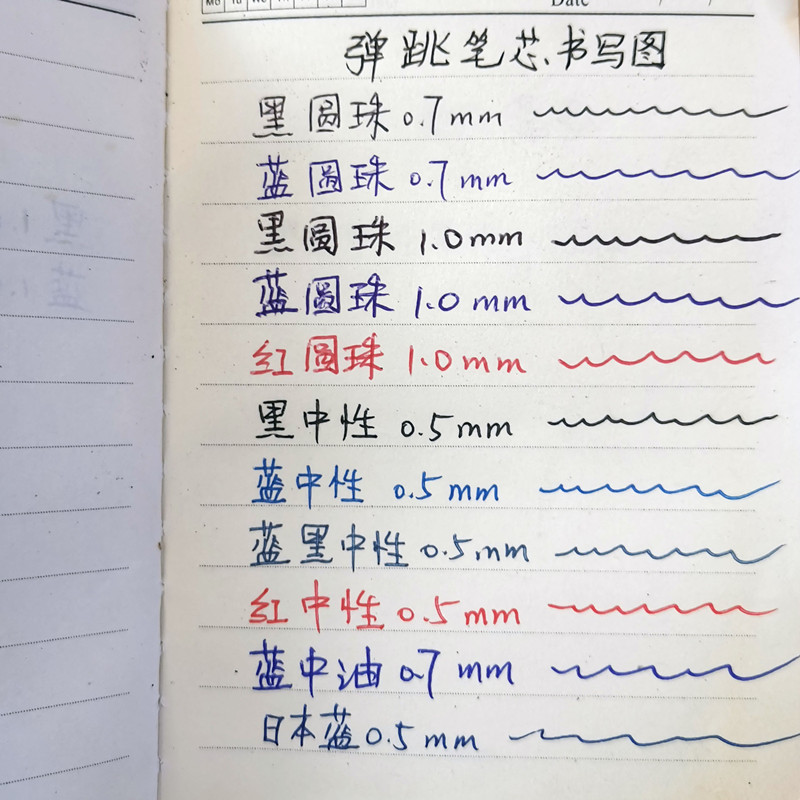 Date / /
弹跳笔芯书写图
黑圆珠 0.7mm
蓝圆珠 0.7mm
黑圆珠 1.0mm
蓝圆珠 1.0mm
红圆珠 1.0mm
黑中性 0.5mm
蓝中性 0.5mm
蓝黑中性 0.5mm
红中性 0.5mm
蓝中油 0.7mm
日本蓝 0.5mm